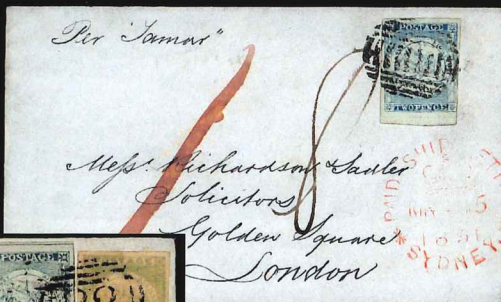 Per "Tamar"
POSTAGE
TWO PENCE
8
Messrs. Richardson & Sadler
Solicitors
Golden Square
London
PAID SHIP
5
1851
SYDNEY
POSTAGE